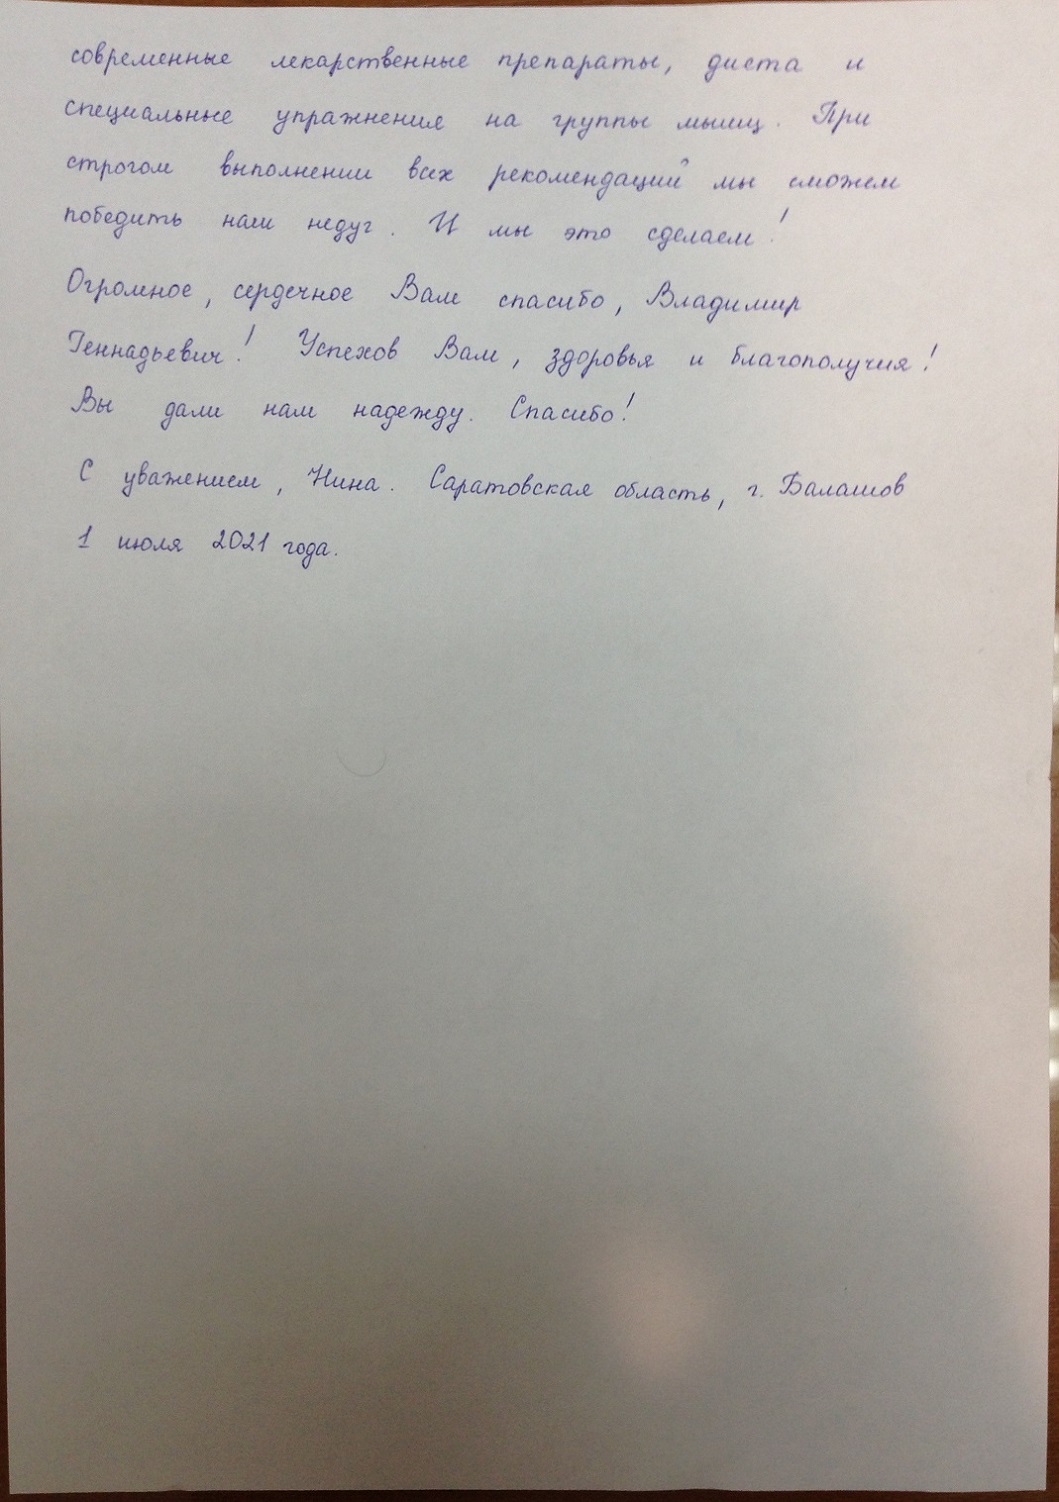 современные лекарственные препараты, диета и
специальные упражнения на группы мышц. При
строгом выполнении всех рекомендаций мы сможем
победить наш недуг. И мы это сделаем!
Огромное, сердечное Вам спасибо, Владимир
Геннадьевич! Успехов Вам, здоровья и благополучия!
Вы дали нам надежду. Спасибо!
С уважением, Нина. Саратовская область, г. Балашов
1 июля 2021 года.